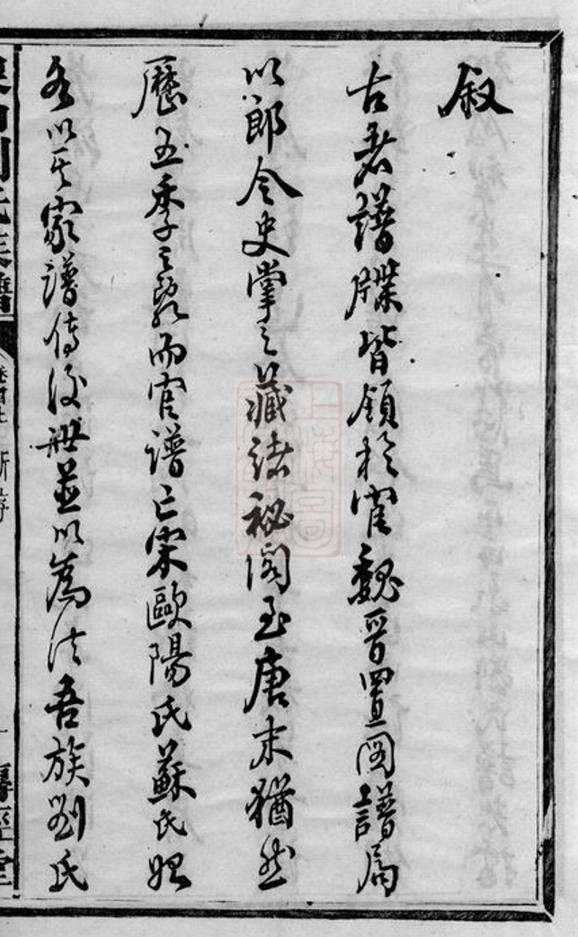 叙
古者譜牒皆領於官魏晉置圖譜局
以郎令史掌之藏諸秘閣至唐末猶然
歷五季之亂而官譜亡宋歐陽氏蘇氏始
各以其家譜傳後世並以為法吾族劉氏
劉氏族譜